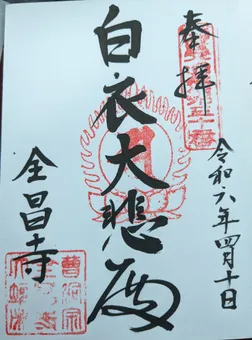 奉拝
令和六年四月十日
白衣大悲殿
全昌寺
曹洞宗